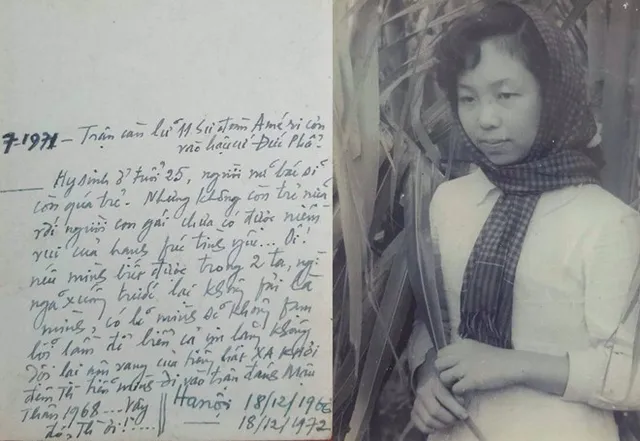 7-1971 - Trận càn lữ 11 Sư đoàn Améri còn
vào hậu cứ Đức Phổ.
Hy sinh ở tuổi 25, người nữ bác sĩ
còn quá trẻ. Nhưng không còn trẻ nữa
với người con gái chưa có được niềm
vui của hạnh phúc tình yêu... Ôi!
nếu mình biết được trong 2 ta,
ngã xuống trước lại không phải là
mình, có lẽ mình đã không
để biển cả im lặng không
dội lại âm vang của tiếng hát XA KHƠI
đêm Th tiễn mình đi vào trận đánh Mậu
Thân 1968... Vậy
đó, Th ơi!...
Hanội 18/12/1966
18/12/1972